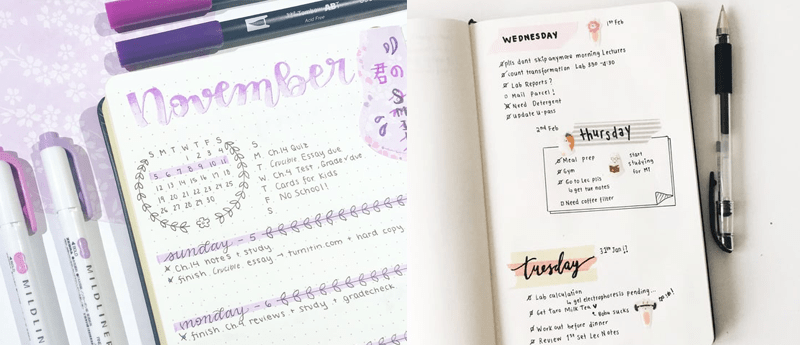 Tombow ABT
Acid Free
November
君の
S M T W T F S
1 2 3 4
5 6 7 8 9 10 11
12 13 14 15 16 17 18
19 20 21 22 23 24 25
26 27 28 29 30
S.
M. Ch.14 Quiz
T. Crucible Essay due
W. Ch.4 Test, Grade✓due
T. Cards for Kids
F. No School!!
S.
sunday - 5 -
Ch.14 notes + study
finish Crucible essay → turnitin.com + hard copy
monday - 6 -
finish Ch.9 reviews + study + gradecheck
MILDLINER
MILDLINE
WEDNESDAY
1st Feb
plis dont skip anymore morning Lectures
count transformation Lab 330-4:30
Lab Reports?
Mail Parcel!
Need Detergent
update U-pass
2nd Feb
thursday
Meal prep
Gym
Go to Lec plis
↳ get the notes
Need coffee filter
start
studying
for MT
32th Jan!!
tuesday
Lab calculation
↳ gel electrophoresis pending...
Get Taro Milk Tea ♥
↳ Boba sucks
Work out before dinner
Review 1st set Lec Notes